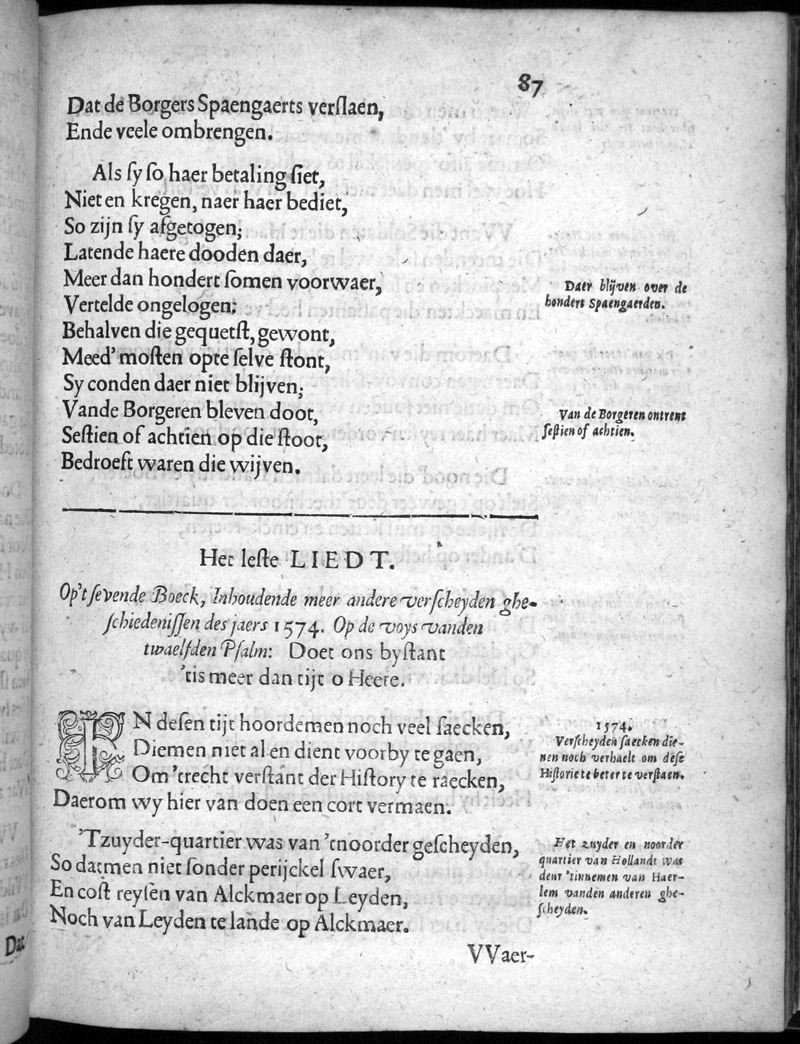 87
Dat de Borgers Spaengaerts verſlaen,
Ende veele ombrengen.
Als ſy ſo haer betaling ſiet,
Niet en kregen, naer haer bediet,
So zijn ſy afgetogen;
Latende haere dooden daer,
Meer dan hondert ſomen voorwaer,
Vertelde ongelogen:
Daer blijven over de
hondert Spaengaerden.
Behalven die gequetſt, gewont,
Meed' moſten opte ſelve ſtont,
Sy conden daer niet blijven;
Vande Borgeren bleven doot,
Seſtien of achtien op die ſtoot,
Bedroeft waren die wijven.
Van de Borgeren ontrent
ſeſtien of achtien.
Het leſte LIEDT.
Op't ſevende Boeck, Inhoudende meer andere verſcheyden ghe-
ſchiedeniſſen des jaers 1574. Op de voys vanden
twaelfden Pſalm: Doet ons byſtant
'tis meer dan tijt o Heere.
IN deſen tijt hoordemen noch veel ſaecken,
Diemen niet al en dient voorby te gaen,
Om 'trecht verſtant der Hiſtory te raecken,
Daerom wy hier van doen een cort vermaen.
1574.
Verſcheyden ſaecken die-
nen noch verhaelt om deſe
Hiſtorie te beter te verſtaen.
'Tzuyder-quartier was van 'tnoorder geſcheyden,
So datmen niet ſonder perijckel ſwaer,
En coſt reyſen van Alckmaer op Leyden,
Noch van Leyden te lande op Alckmaer.
Het zuyder en noorder
quartier van Hollandt was
deur 'tinnemen van Haer-
lem vanden anderen ghe-
ſcheyden.
VVaer-
Dat